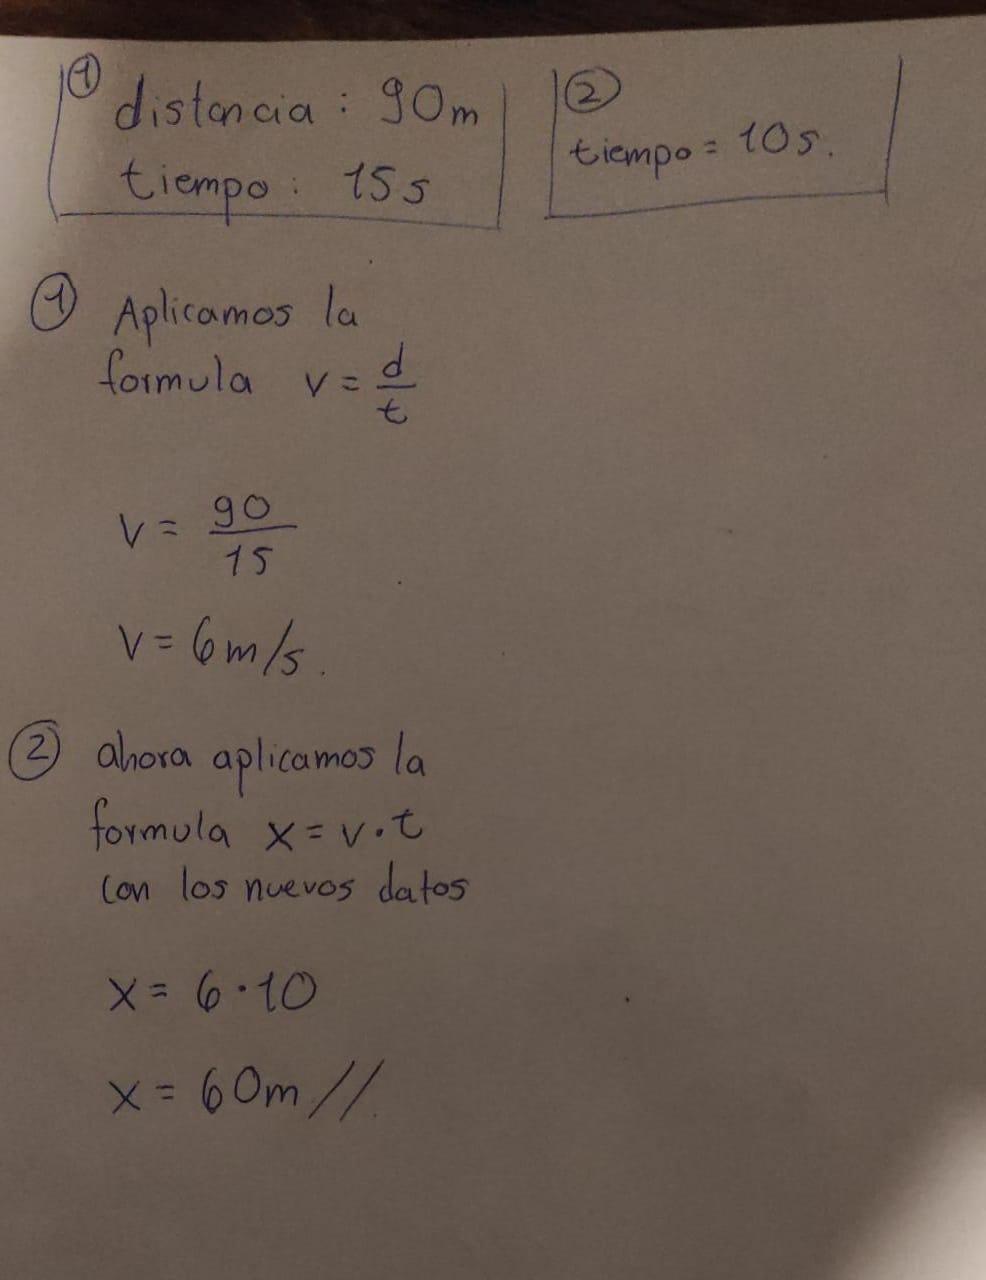 ①
distancia : 90m
tiempo : 15s
②
tiempo = 10s.
① Aplicamos la
formula v = d/t
v = 90/15
v = 6m/s.
② ahora aplicamos la
formula x = v.t
con los nuevos datos
x = 6·10
x = 60m //